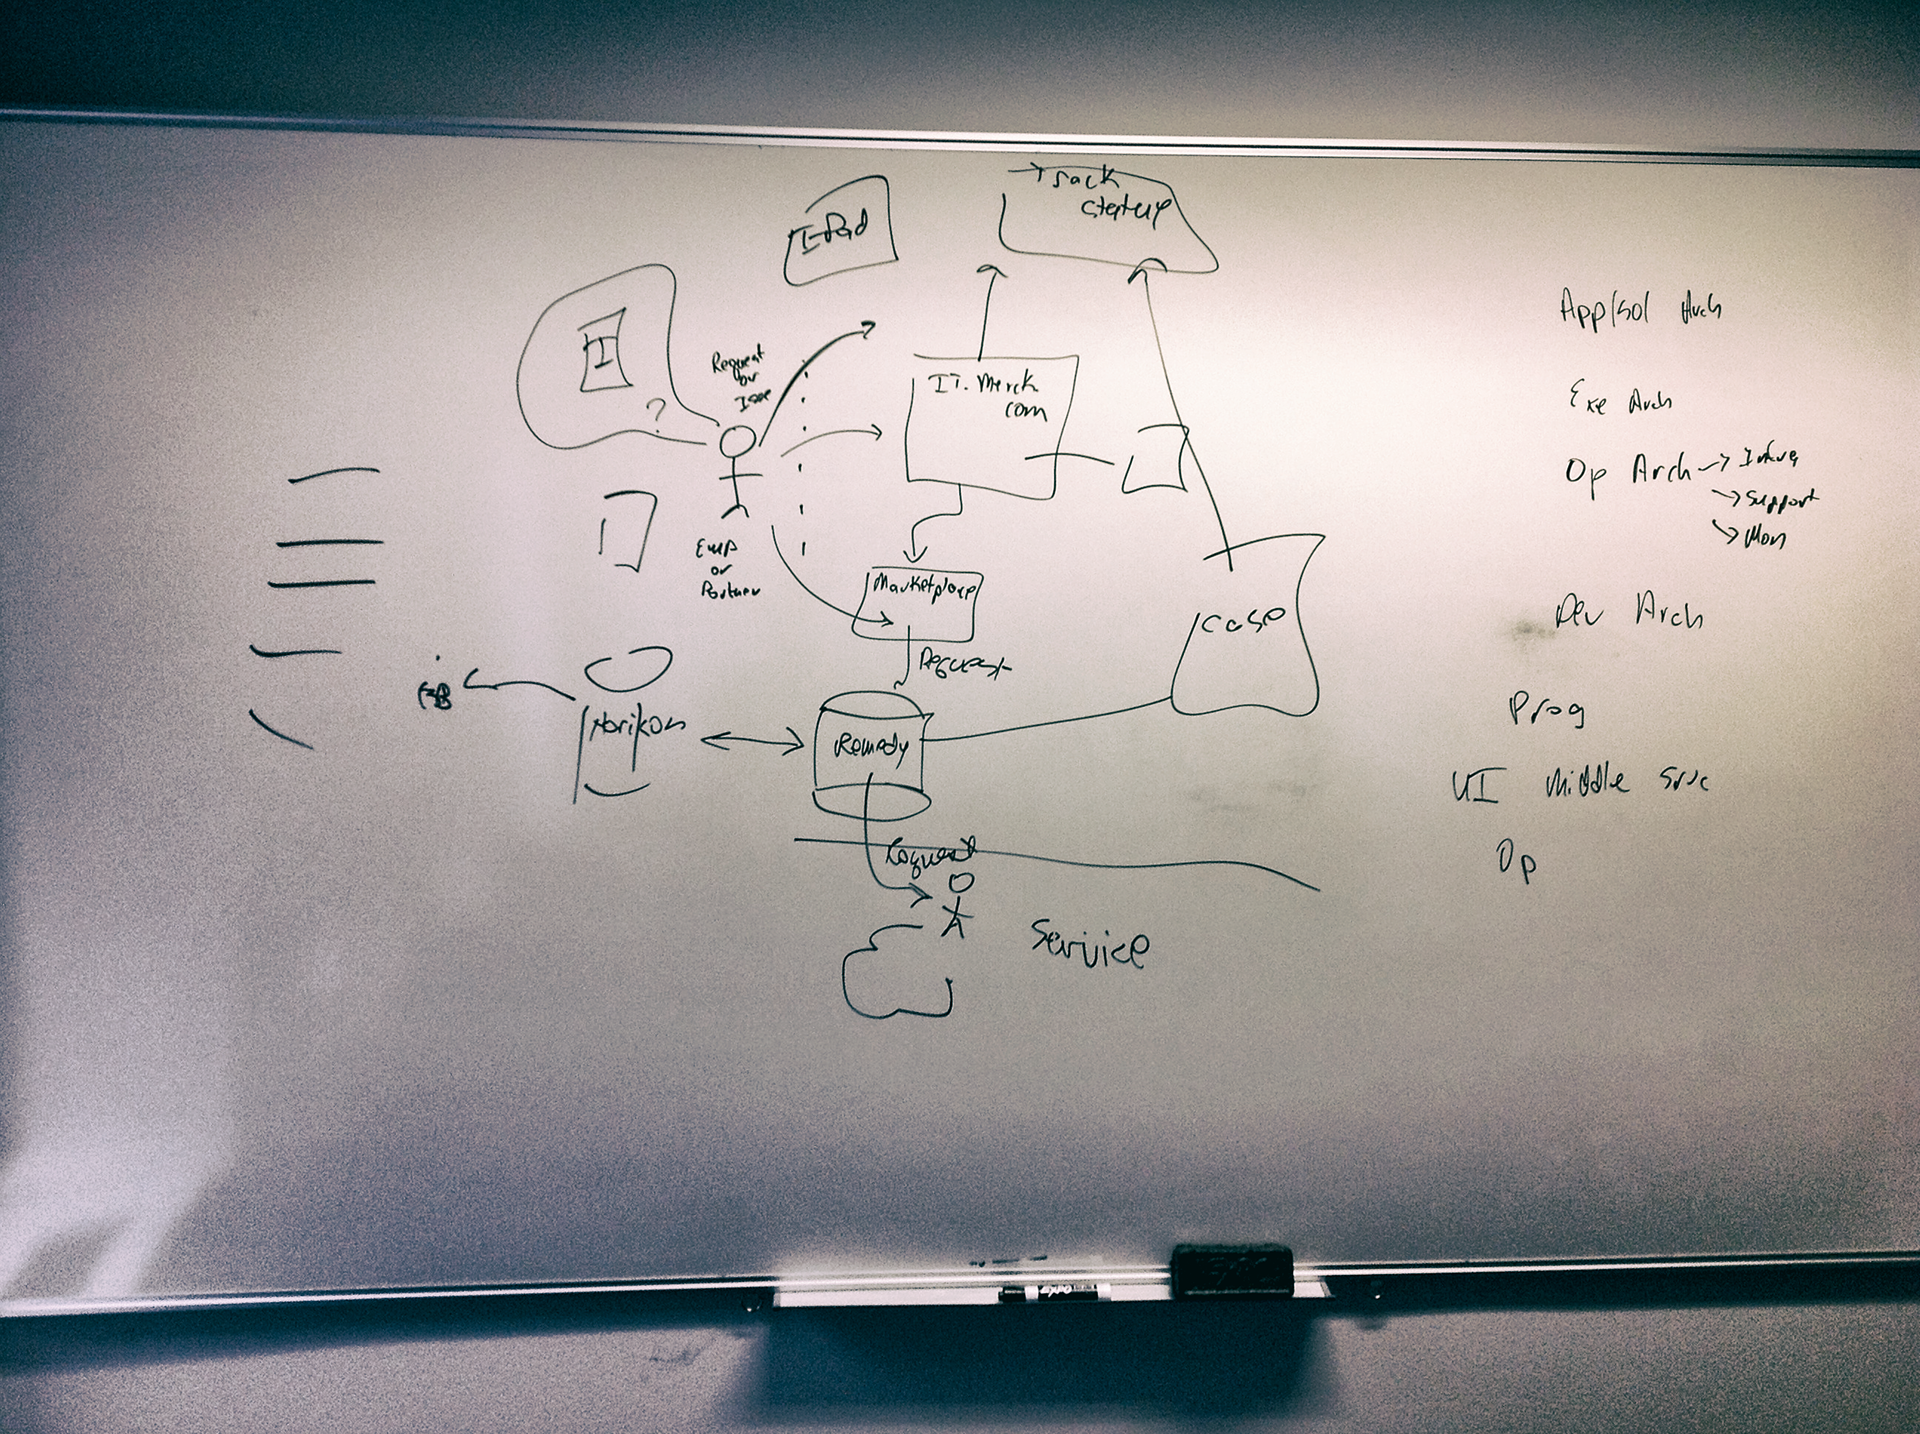 I-Pad
I
?
Request
or
Issue
Emp
or
Partner
IT. Merck
com
Marketplace
Request
Case
Remedy
Request
Service
App/Sol Arch
Exe Arch
Op Arch → Infra
→ Support
→ Mon
Dev Arch
Prog
UI Middle Srvc
Op